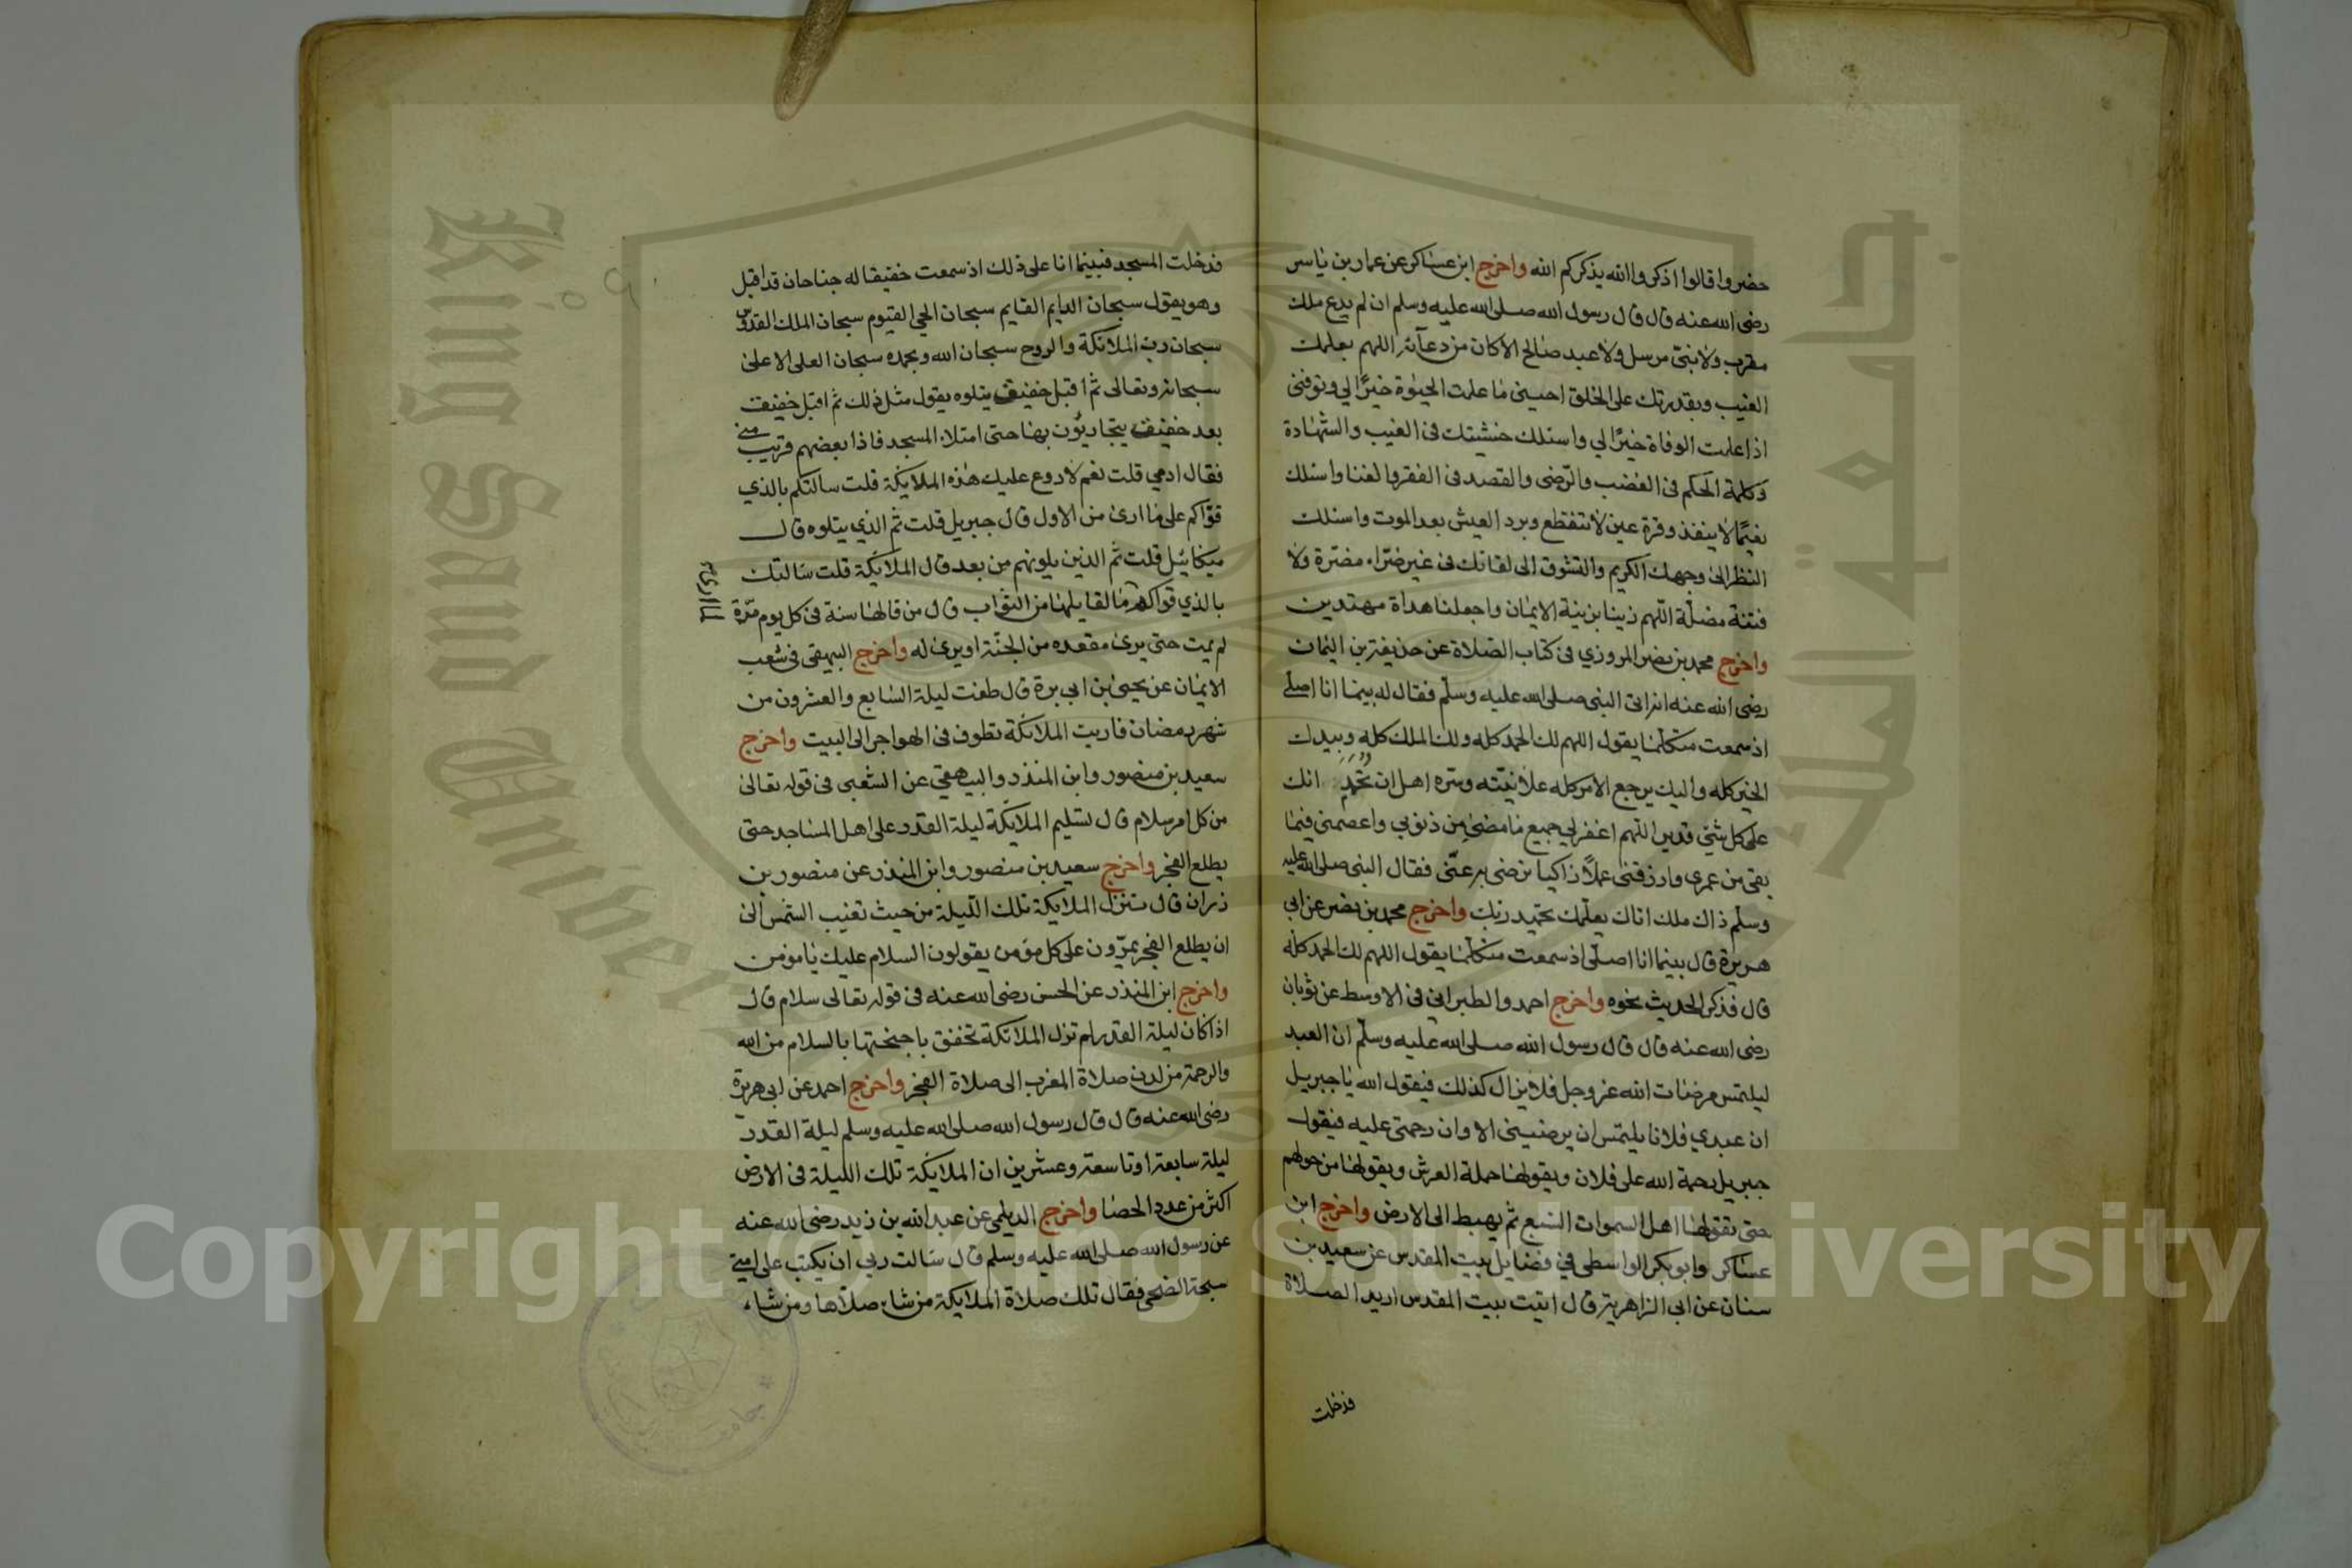 حضروا قالوا اذكروا الله يذكركم الله واخرج ابن عساكر عن عمار بن ياسر
رضى الله عنه قال قال رسول الله صلى الله عليه وسلم ان لم يدع ملك
مقرب ولا نبى مرسل ولا عبد صالح الا كان من دعآئه اللهم بعلمك
الغيب وبقدرتك على الخلق احينى ما علمت الحيوة خيرًا لي وتوفنى
اذا علمت الوفاة خيرًا لي واسئلك خشيتك فى الغيب والشهادة
وكلمة الحكم فى الغضب والرّضى والقصد فى الفقر والغنا واسئلك
نعيمًا لا ينفذ وقرة عين لا تنقطع وبرد العيش بعد الموت واسئلك
النظر الى وجهك الكريم والتشوق الى لقائك فى غير ضرّاء مضرة ولا
فتنة مضلّة اللهم زينا بزينة الايمان واجعلنا هداة مهتدين
واخرج محمد بن نصر المروزي فى كتاب الصلاة عن حذيفة بن اليمان
رضى الله عنه انه اتى النبى صلى الله عليه وسلّم فقال له بينما انا اصلى
اذ سمعت متكلما يقول اللهم لك الحمد كله ولك الملك كله وبيدك
الخير كله واليك يرجع الامر كله علانيته وسره اهل ان تحمد انك
على كل شئ قدير اللهم اغفر لي جميع ما مضى من ذنوبي واعصمنى فيما
بقى من عمرى وارزقنى عملاً زاكيا ترضى به عنّى فقال النبى صلى الله عليه
وسلّم ذاك ملك اتاك يعلّمك تحميد ربك واخرج محمد بن نصر عن ابى
هريرة قال بينما انا اصلّى اذ سمعت متكلّما يقول اللهم لك الحمد كله
قال فذكر الحديث نحوه واخرج احمد والطبرانى فى الاوسط عن ثوبان
رضى الله عنه قال قال رسول الله صلى الله عليه وسلّم ان العبد
ليلتمس مرضات الله عز وجل فلا يزال كذلك فيقول الله يا جبريل
ان عبدي فلانا يلتمس ان يرضينى الا وان رحمتى عليه فيقول
جبريل رحمة الله على فلان ويقولها حملة العرش ويقولها من حولهم
حتى تقولها اهل السموات السبع ثم يهبط الى الارض واخرج ابن
عساكر وابو بكر الواسطى في فضايل بيت المقدس عن سعيد بن
سنان عن ابى الزاهرية قال اتيت بيت المقدس اريد الصلاة
فدخلت
فدخلت المسجد فبينما انا على ذلك اذ سمعت خفيقا له جناحان قد اقبل
وهو يقول سبحان الدايم القايم سبحان الحي القيوم سبحان الملك القدوس
سبحان رب الملائكة والروح سبحان الله وبحمده سبحان العلى الاعلى
سبحانه وتعالى ثم اقبل خفيق يتلوه يقول مثل ذلك ثم اقبل خفيق
بعد خفيق يتجاوبون بها حتى امتلاء المسجد فاذا بعضهم قريب منى
فقال ادمي قلت نعم لا روع عليك هذه الملايكة قلت سالتكم بالذي
قوّاكم على ما ارى من الاول قال جبريل قلت ثم الذي يتلوه قال
ميكائيل قلت ثم الذين يلونهم من بعد قال الملائكة قلت سالتك
بالذي قواكم ما لقايلها من الثواب قال من قالها سنة فى كل يوم مرّة
لم يمت حتى يرى مقعده من الجنّة او يرى له واخرج البيهقى فى شعب
الايمان عن يحيى بن ابي برة قال طفت ليلة السابع والعشرون من
شهر رمضان فاريت الملائكة تطوف فى الهواجر الى البيت واخرج
سعيد بن منصور وابن المنذر والبيهقي عن الشعبى فى قوله تعالى
من كل امر سلام قال تسليم الملايكة ليلة القدر على اهل المساجد حتى
يطلع الفجر واخرج سعيد بن منصور وابن المنذر عن منصور بن
زاذان قال تتنزل الملايكة تلك الليلة من حيث تغيب الشمس الى
ان يطلع الفجر يمرّون على كل مؤمن يقولون السلام عليك يا مومن
واخرج ابن المنذر عن الحسن رضى الله عنه فى قوله تعالى سلام قال
اذا كان ليلة القدر لم تزل الملائكة تخفق باجنحتها بالسلام من الله
والرحمة من لدن صلاة المغرب الى صلاة الفجر واخرج احمد عن ابى هريرة
رضى الله عنه قال قال رسول الله صلى الله عليه وسلم ليلة القدر
ليلة سابعة او تاسعة وعشرين ان الملايكة تلك الليلة فى الارض
اكثر من عدد الحصا واخرج الديلمى عن عبد الله بن زيد رضى الله عنه
عن رسول الله صلى الله عليه وسلم قال سالت ربي ان يكتب على امتى
سبحة الضحى فقال تلك صلاة الملايكة من شاء صلاها ومن شاء
King Saud University
جامعة الملك
Copyright © King Saud University